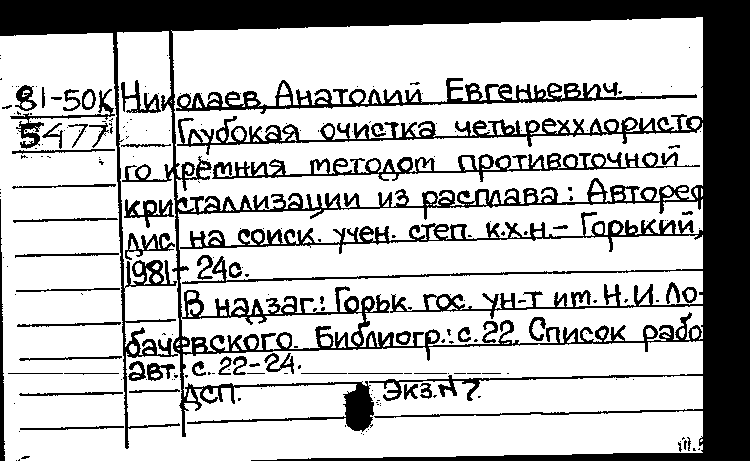 81-50К Николаев, Анатолий Евгеньевич.
5477 Глубокая очистка четыреххлористо
го кремния методом противоточной
кристаллизации из расплава: Автореф
дис. на соиск. учен. степ. к.х.н.- Горький,
1981.- 24с.
В надзаг.: Горьк. гос. ун-т им. Н.И. Ло-
бачевского. Библиогр.: с.22. Список рабо
авт.: с. 22-24.
ДСП. Экз.N 7.